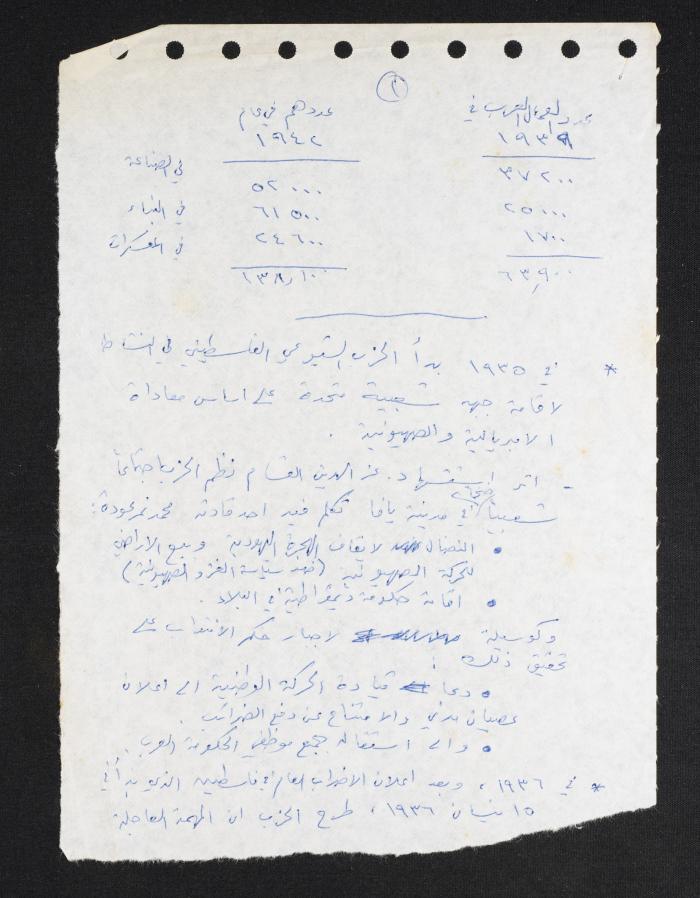 ٢
عدد العمال العرب في    عددهم في عام
١٩٣٩    ١٩٤٢
٣٧٢٠٠    ٥٢٠٠٠    في الصناعة
٢٥٠٠٠    ٦١٥٠٠    في البناء
١٧٠٠    ٢٤٦٠٠    في المعسكرات
٦٣,٩٠٠    ١٣٨,١٠٠
* في ١٩٣٥ بدأ الحزب الشيوعي الفلسطيني في النشاط
لاقامة جبهة شعبية متحدة على اساس معاداة
الامبريالية والصهيونية .
- اثر استشهاد عز الدين القسام نظم الحزب اجتماعا
شعبيا ضخما في مدينة يافا تكلم فيه احد قادته محمد نمر عودة :
• النضال لايقاف الهجرة اليهودية وبيع الاراضي
للحركة الصهيونية (ضد سياسة الغزو الصهيونية)
• اقامة حكومة ديمقراطية في البلاد .
وكوسيلة لاجبار حكم الانتداب على
تحقيق ذلك :
• دعا قيادة الحركة الوطنية الى اعلان
عصيان مدني والامتناع عن دفع الضرائب .
• والى استقالة جميع موظفي الحكومة العرب .
* في ١٩٣٦ ، وبعد اعلان الاضراب العام في فلسطين الذي بدأ في
١٥ نيسان ١٩٣٦ ، طرح الحزب ان المهمة العاجلة